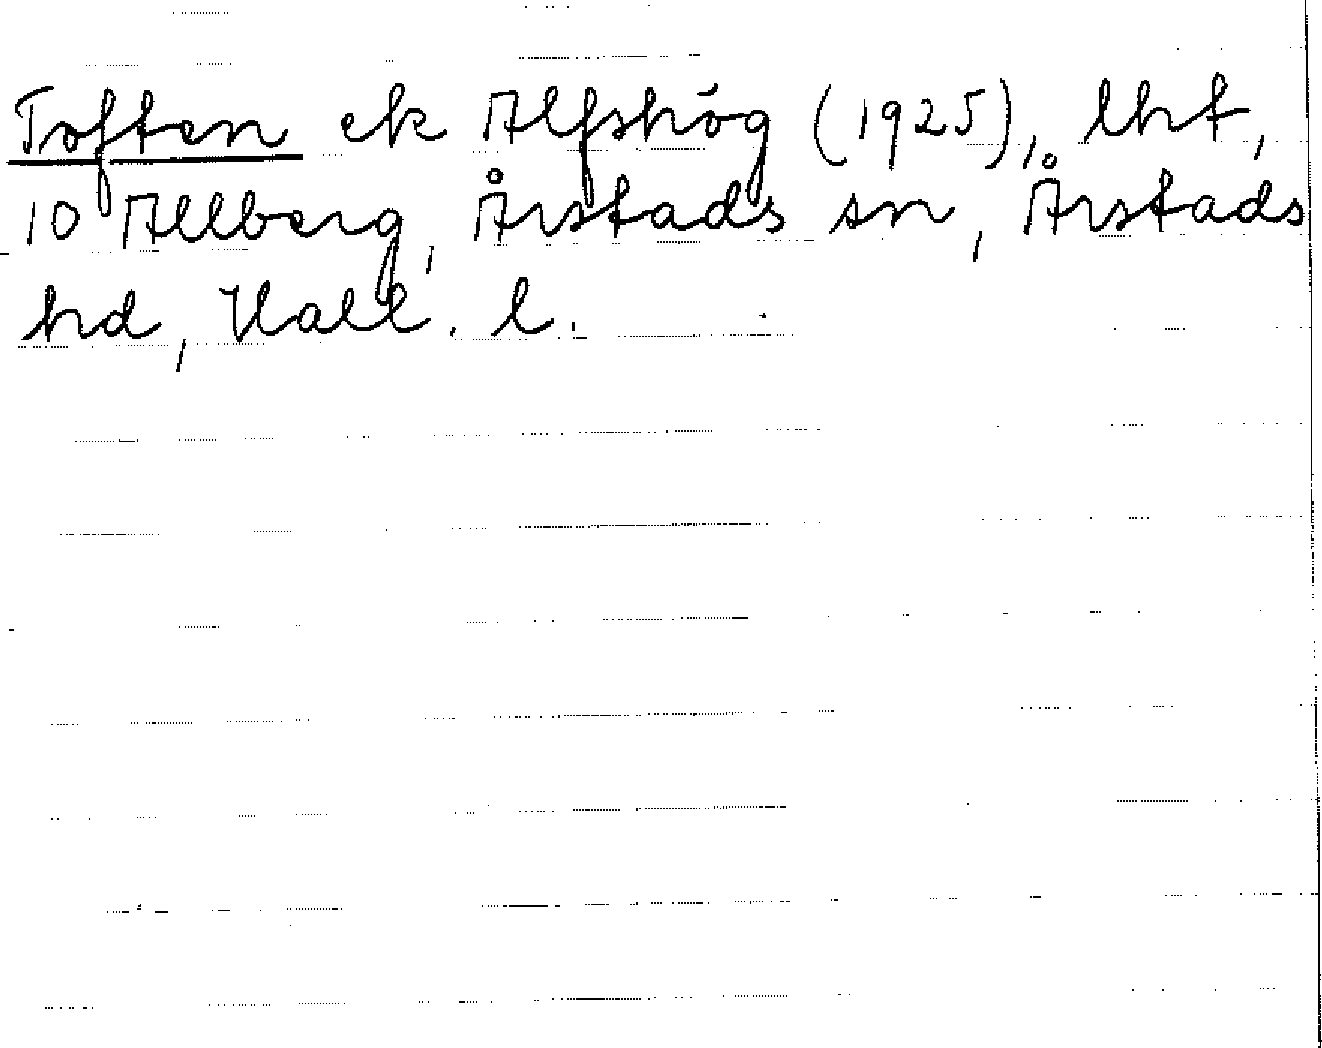 Toften ek Alfshög (1925), lht,
10 Allberg, Årstads sn, Årstads
hd, Hall. l.